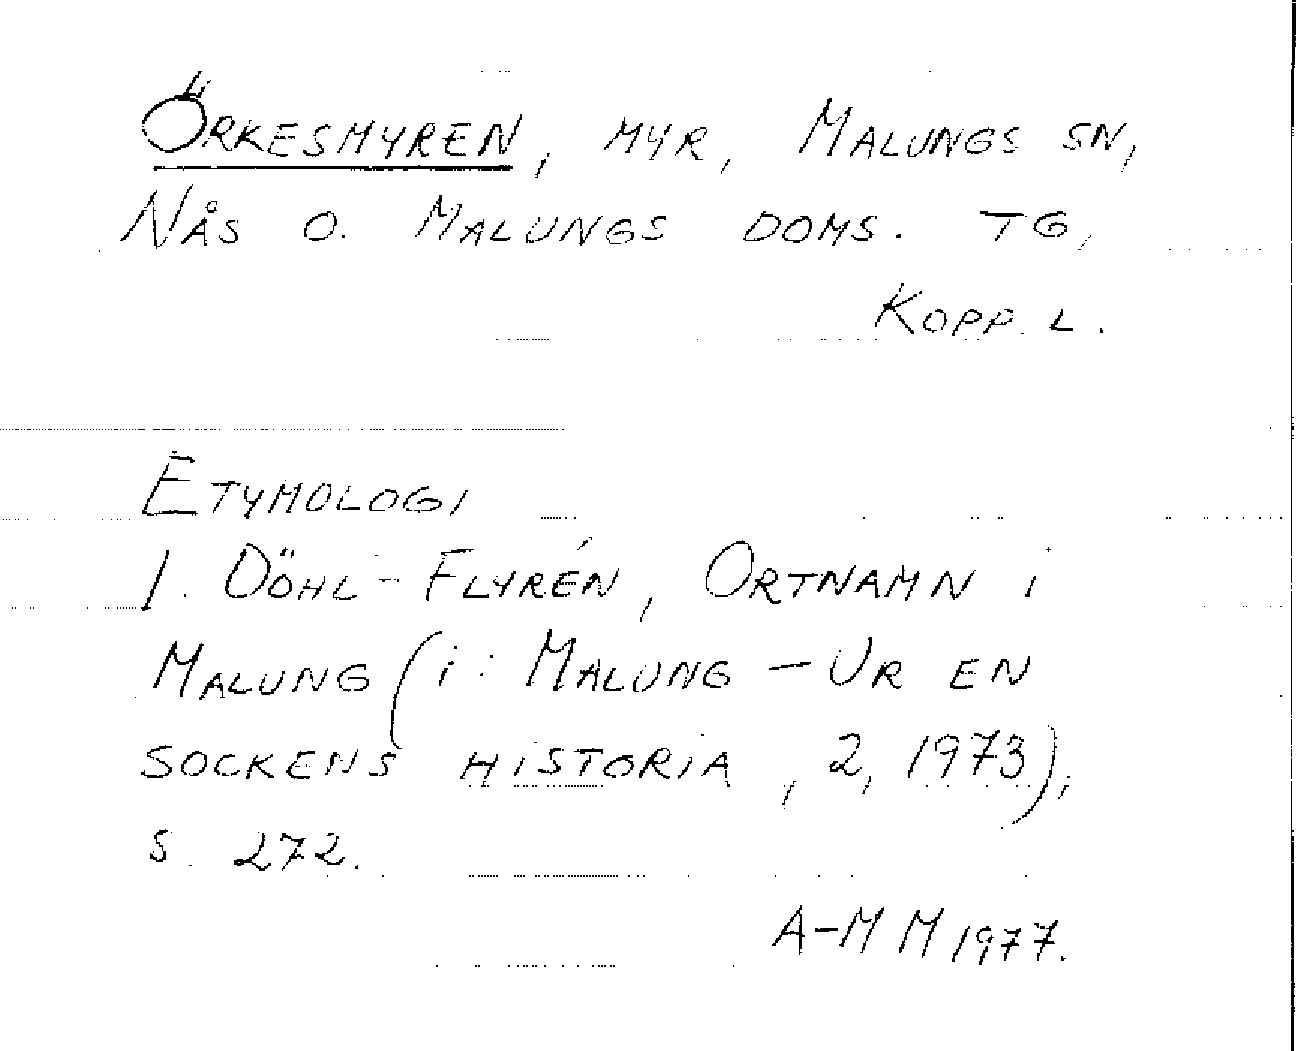 ÖRKESMYREN, MYR, MALUNGS SN,
NÅS O. MALUNGS DOMS. TG,
KOPP. L.
ETYMOLOGI
I. DÖHL-FLYRÉN, ORTNAMN i
MALUNG (i: MALUNG - UR EN
SOCKENS HiSTORiA, 2, 1973),
S. 272.
A-M M 1977.